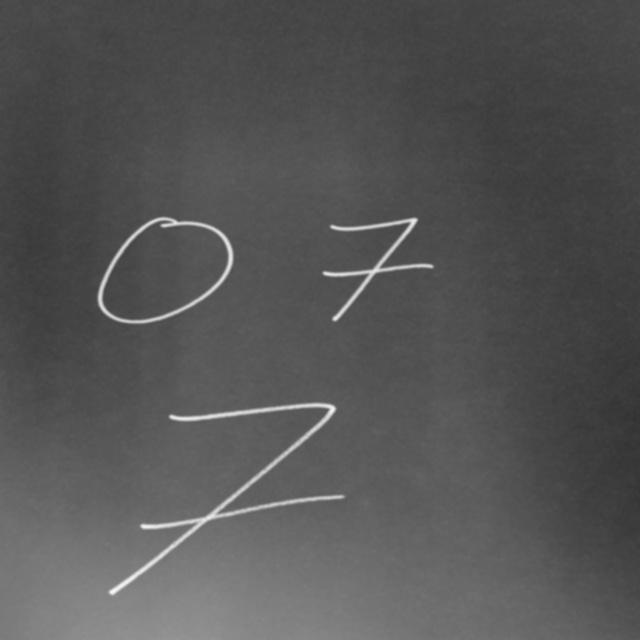 0 7
7